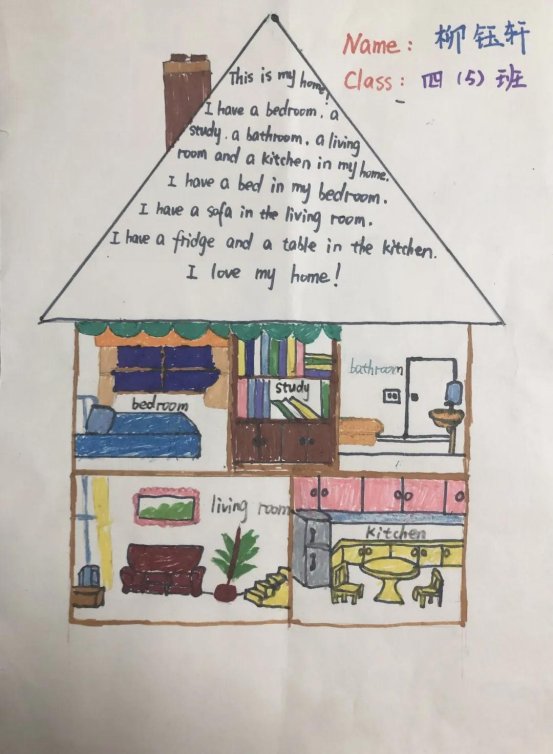 Name: 柳钰轩
Class: 四（5）班
This is my home!
I have a bedroom. a
study. a bathroom. a living
room and a kitchen in my home.
I have a bed in my bedroom.
I have a sofa in the living room.
I have a fridge and a table in the kitchen.
I love my home!
bedroom
study
bathroom
living room
kitchen